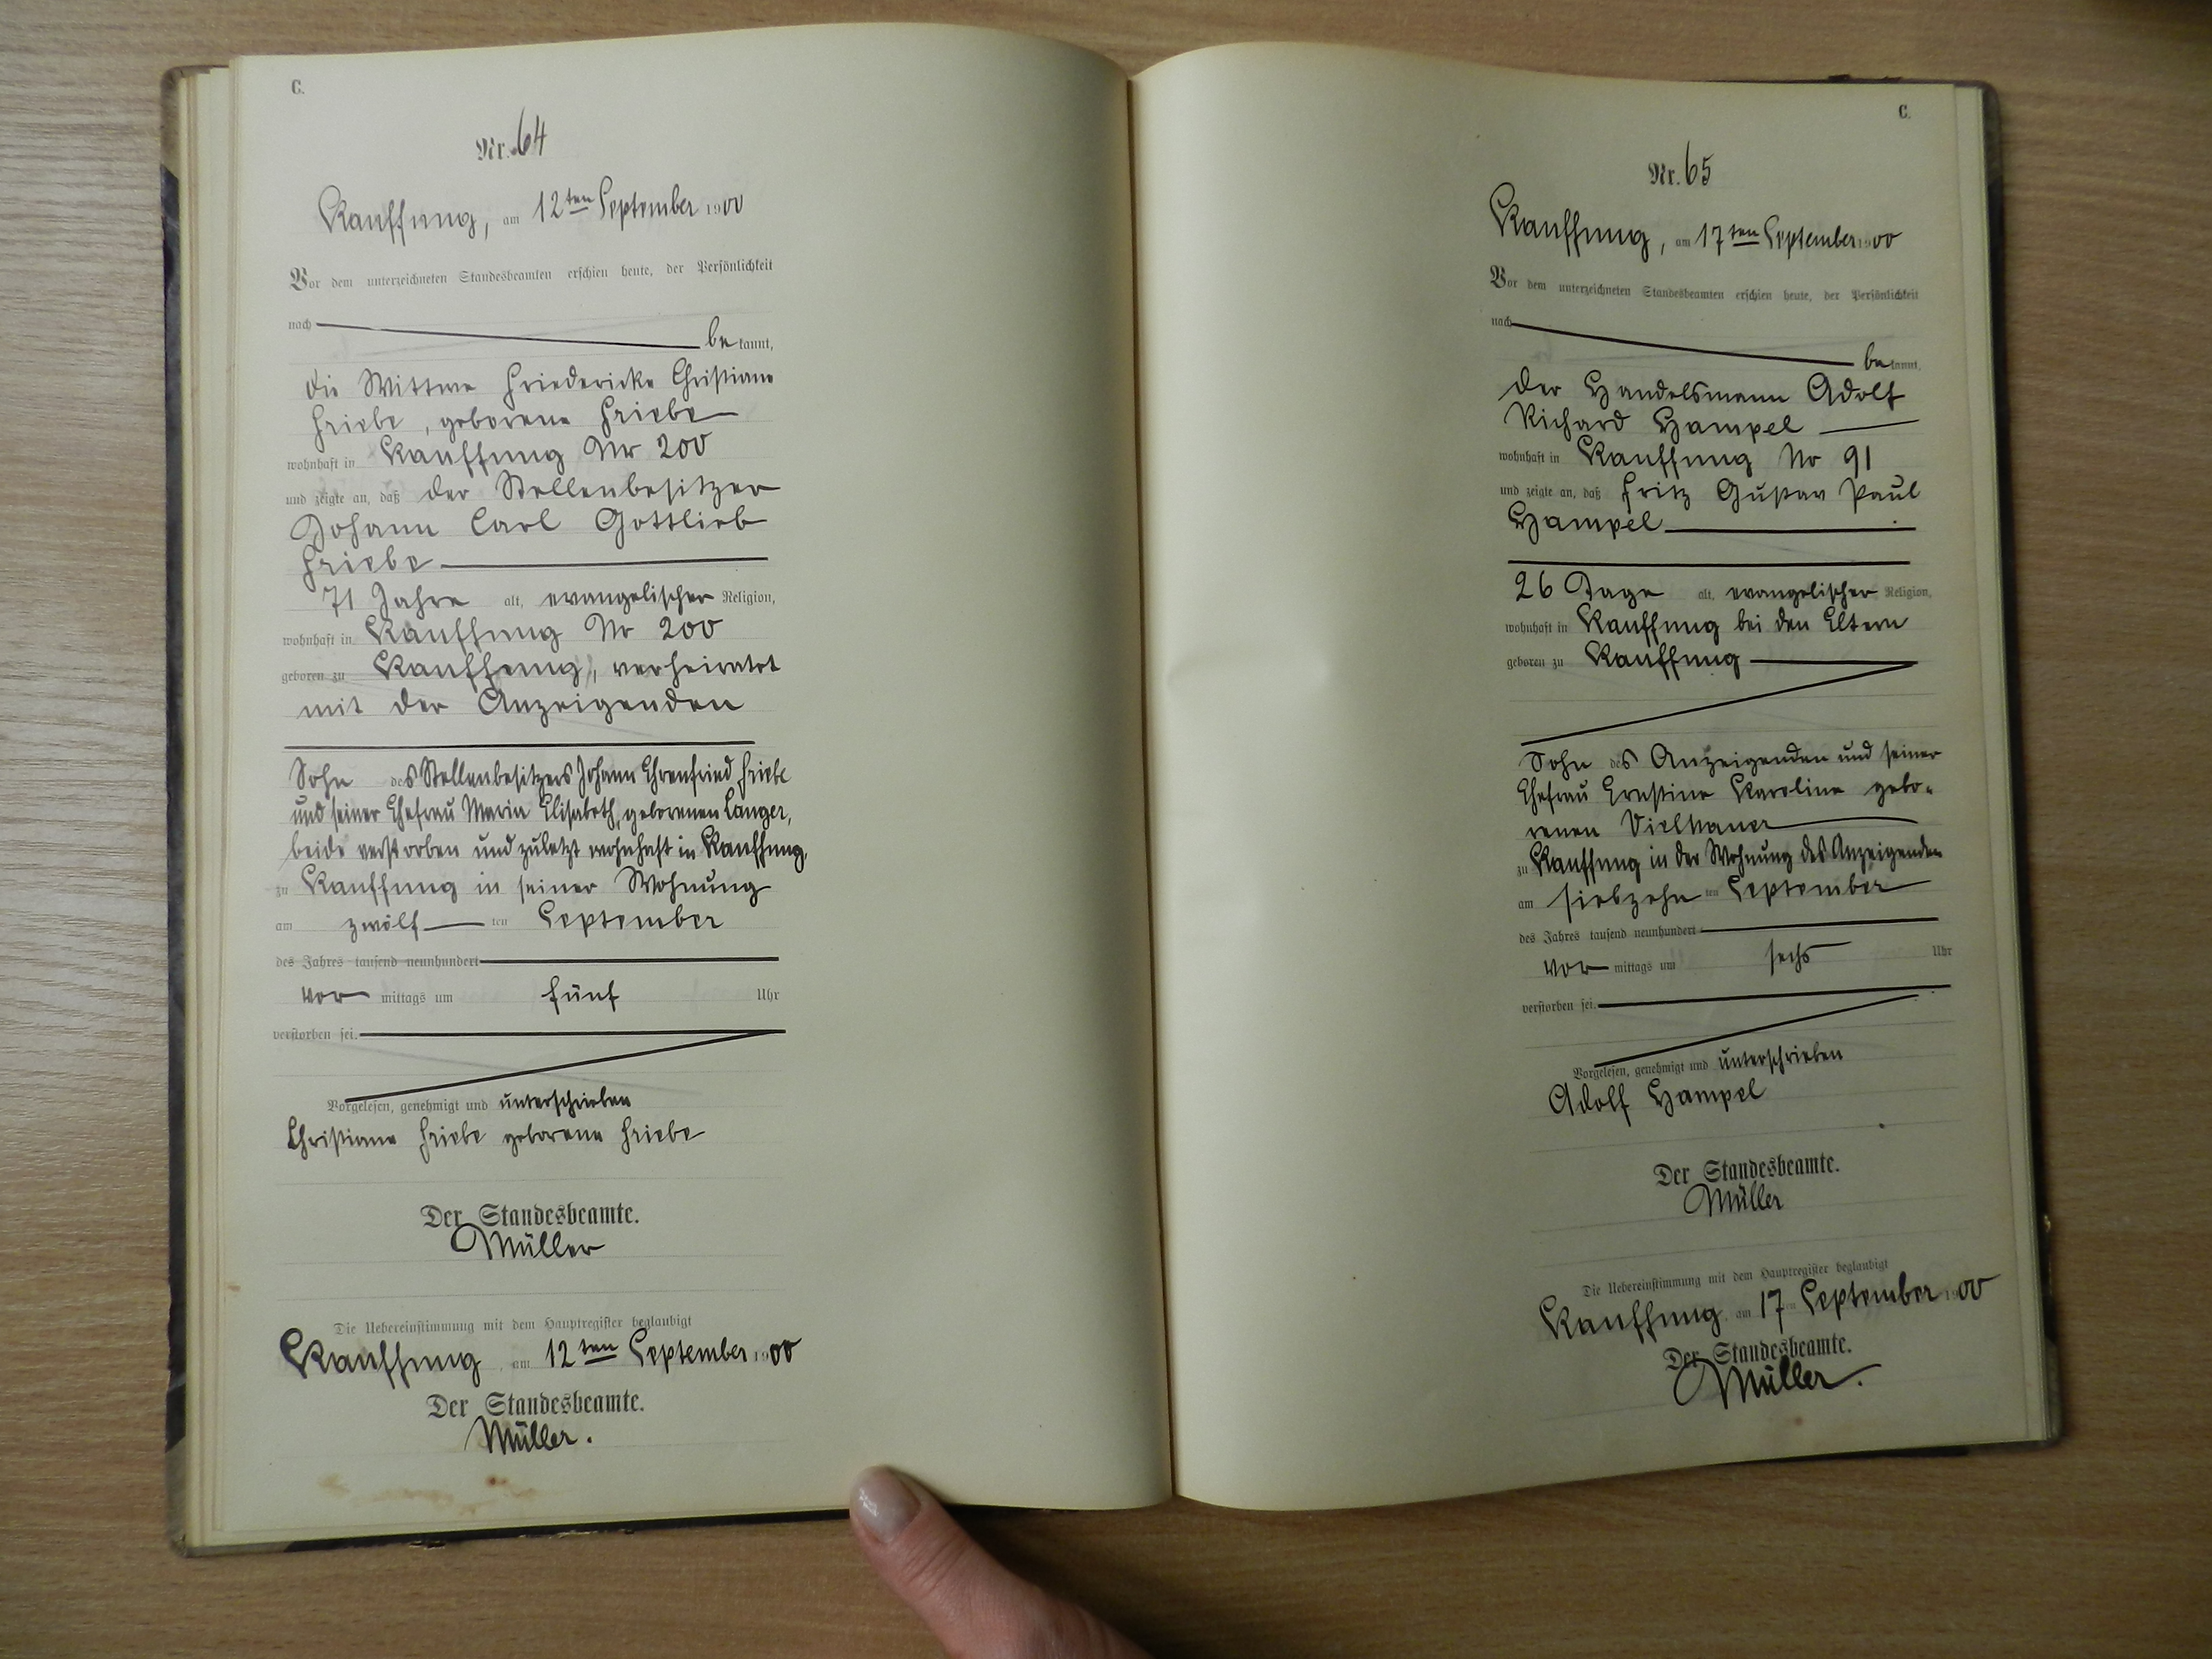 C.
Nr. 64
Kauffung, am 12ten September 1900
Vor dem unterzeichneten Standesbeamten erschien heute, der Persönlichkeit
nach
bekannt,
die Wittwe Friedericke Christiane
Friebe, geborene Friebe
wohnhaft in Kauffung Nr 200
und zeigte an, daß der Stellenbesitzer
Johann Carl Gottlieb
Friebe
71 Jahre alt, evangelischer Religion,
wohnhaft in Kauffung No 200
geboren zu Kauffung, verheiratet
mit der Anzeigenden
Sohn des Stellenbesitzers Johann Ehrenfried Friebe
und seiner Ehefrau Maria Elisabeth, geborenen Langer,
beide verstorben und zuletzt wohnhaft in Kauffung,
zu Kauffung in seiner Wohnung
am zwölf ten September
des Jahres tausend neunhundert
vor mittags um fünf Uhr
verstorben sei.
Vorgelesen, genehmigt und unterschrieben
Christiane Friebe geborene Friebe
Der Standesbeamte.
Müller
Die Uebereinstimmung mit dem Hauptregister beglaubigt
Kauffung am 12ten September 1900
Der Standesbeamte.
Müller.
C.
Nr. 65
Kauffung, am 17ten September 1900
Vor dem unterzeichneten Standesbeamten erschien heute, der Persönlichkeit
nach
bekannt,
der Handelsmann Adolf
Richard Hampel
wohnhaft in Kauffung No 91
und zeigte an, daß Fritz Gustav Paul
Hampel
26 Tage alt, evangelischer Religion,
wohnhaft in Kauffung bei den Eltern
geboren zu Kauffung
Sohn des Anzeigenden und seiner
Ehefrau Ernestine Karoline gebo-
renen Vielhauer
zu Kauffung in der Wohnung des Anzeigenden
am siebzehn ten September
des Jahres tausend neunhundert
vor mittags um sechs Uhr
verstorben sei.
Vorgelesen, genehmigt und unterschrieben
Adolf Hampel
Der Standesbeamte.
Müller
Die Uebereinstimmung mit dem Hauptregister beglaubigt
Kauffung am 17 ten September 1900
Der Standesbeamte.
Müller.